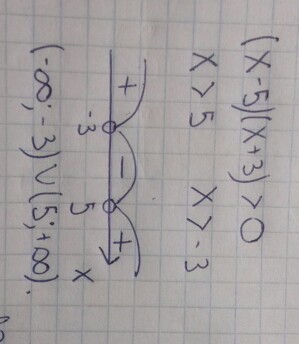 (x-5)(x+3)>0
x>5 x>-3
+ - +
-3 5 x
(-∞;-3)∪(5;+∞).